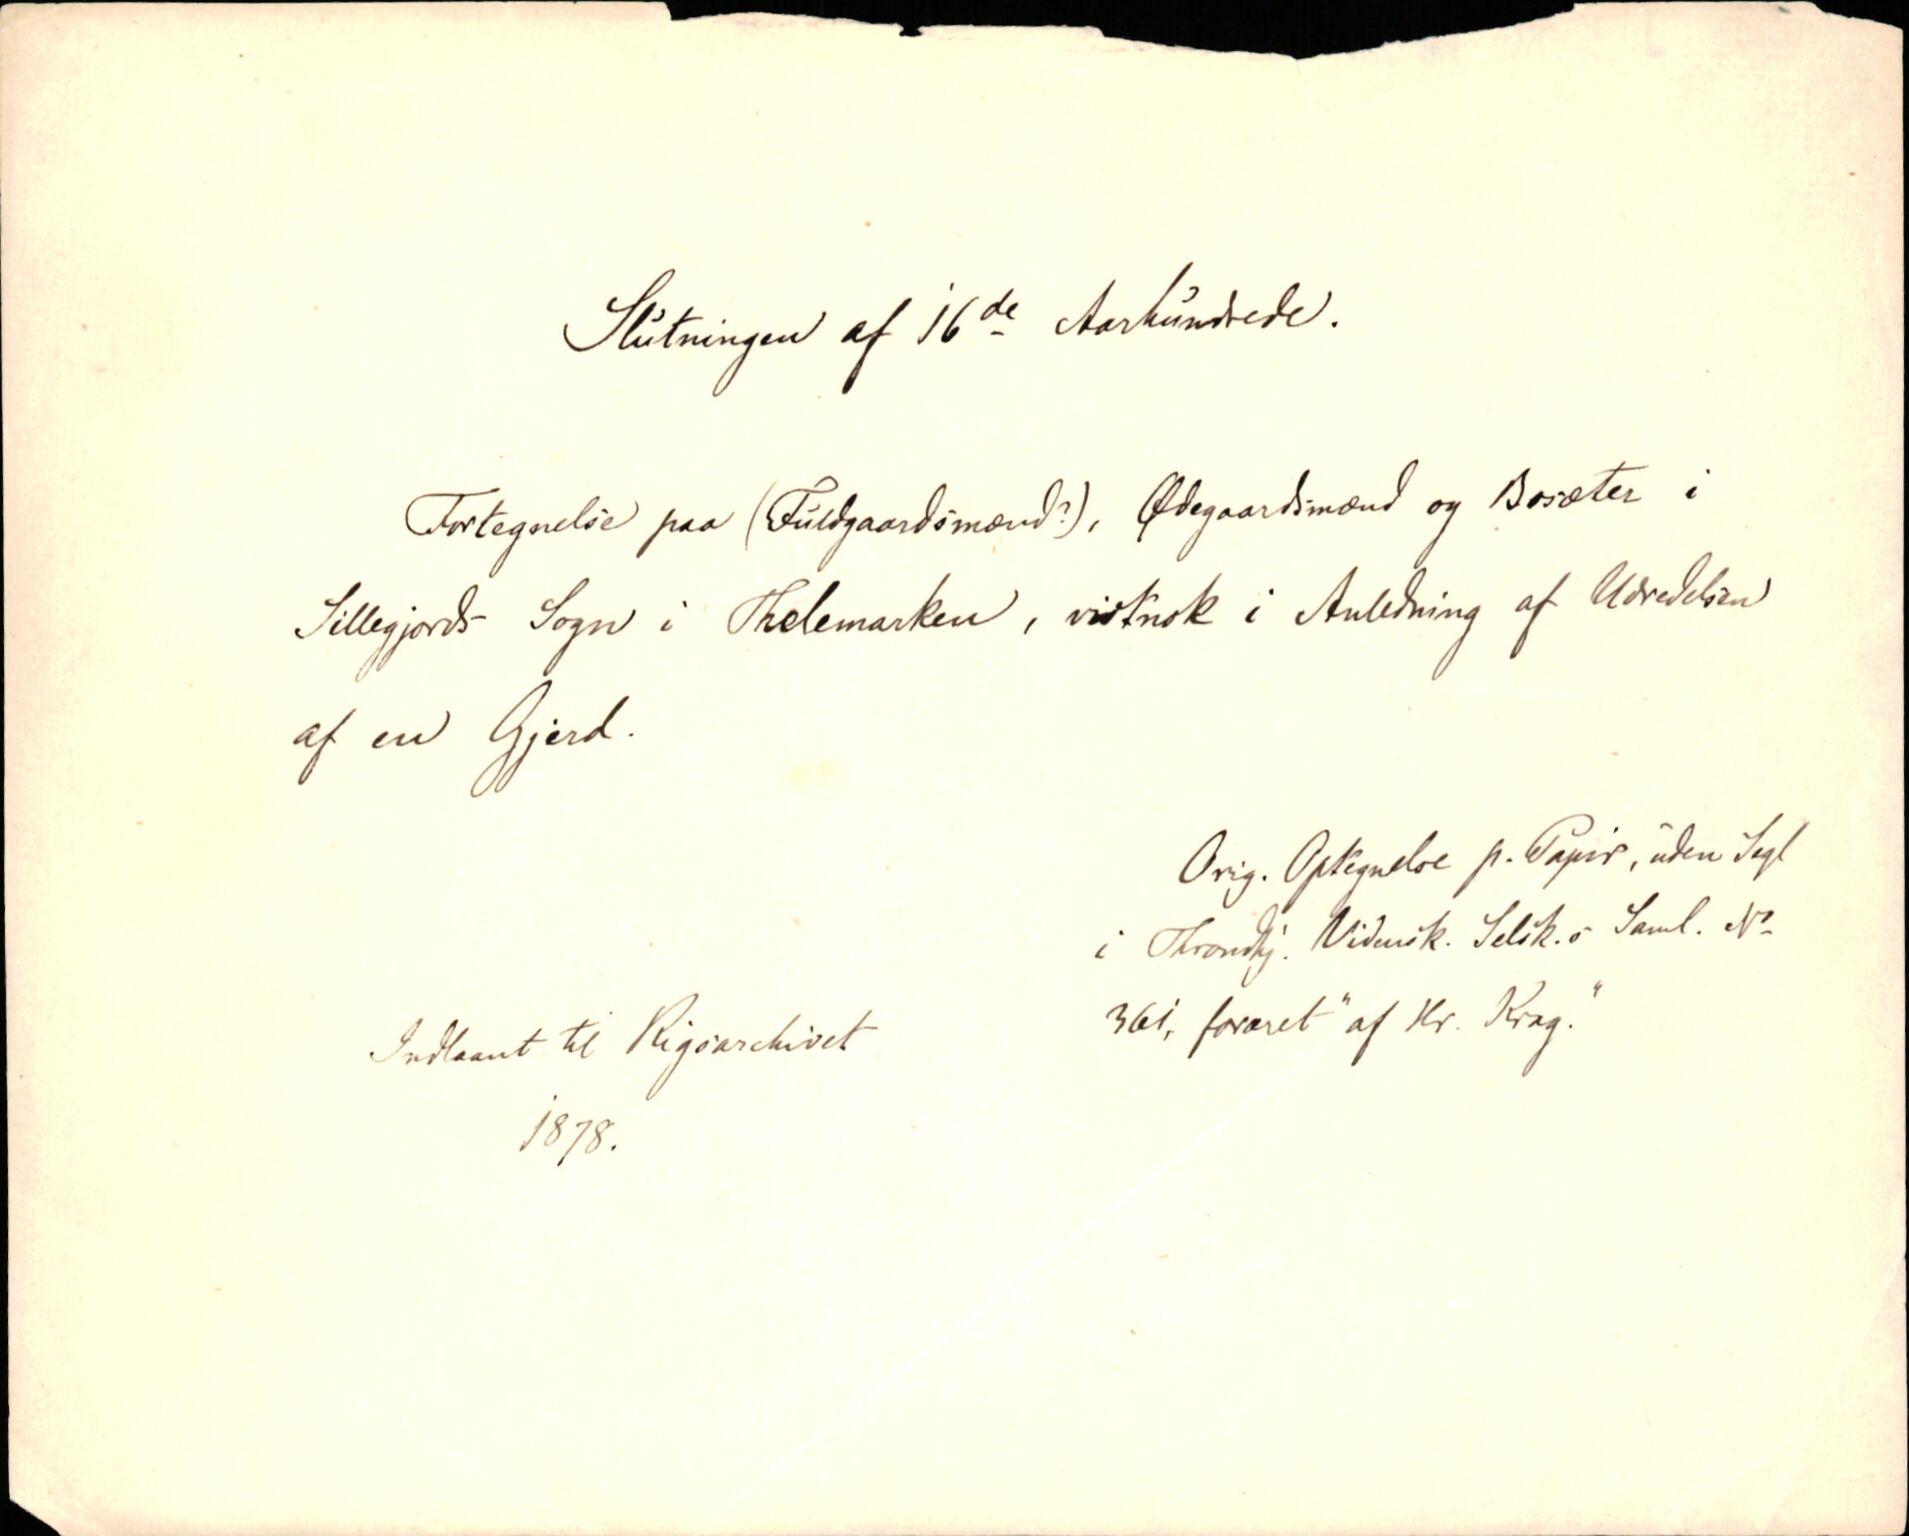 Slutningen af 16de Aarhundrede.
Fortegnelse paa (Fuldgaardsmænd?), Ødegaardsmænd og Bosæter i
Sillegjords Sogn i Thelemarken, vistnok i Anledning af Udredelsen
af en Gjerd.
Orig. Optegnelse p. Papir, uden Segl
i Throndhj. Vidensk. Selsk.s Saml. No
361, foræret "af Hr. Krag."
Indlaant til Rigsarchivet
1878.